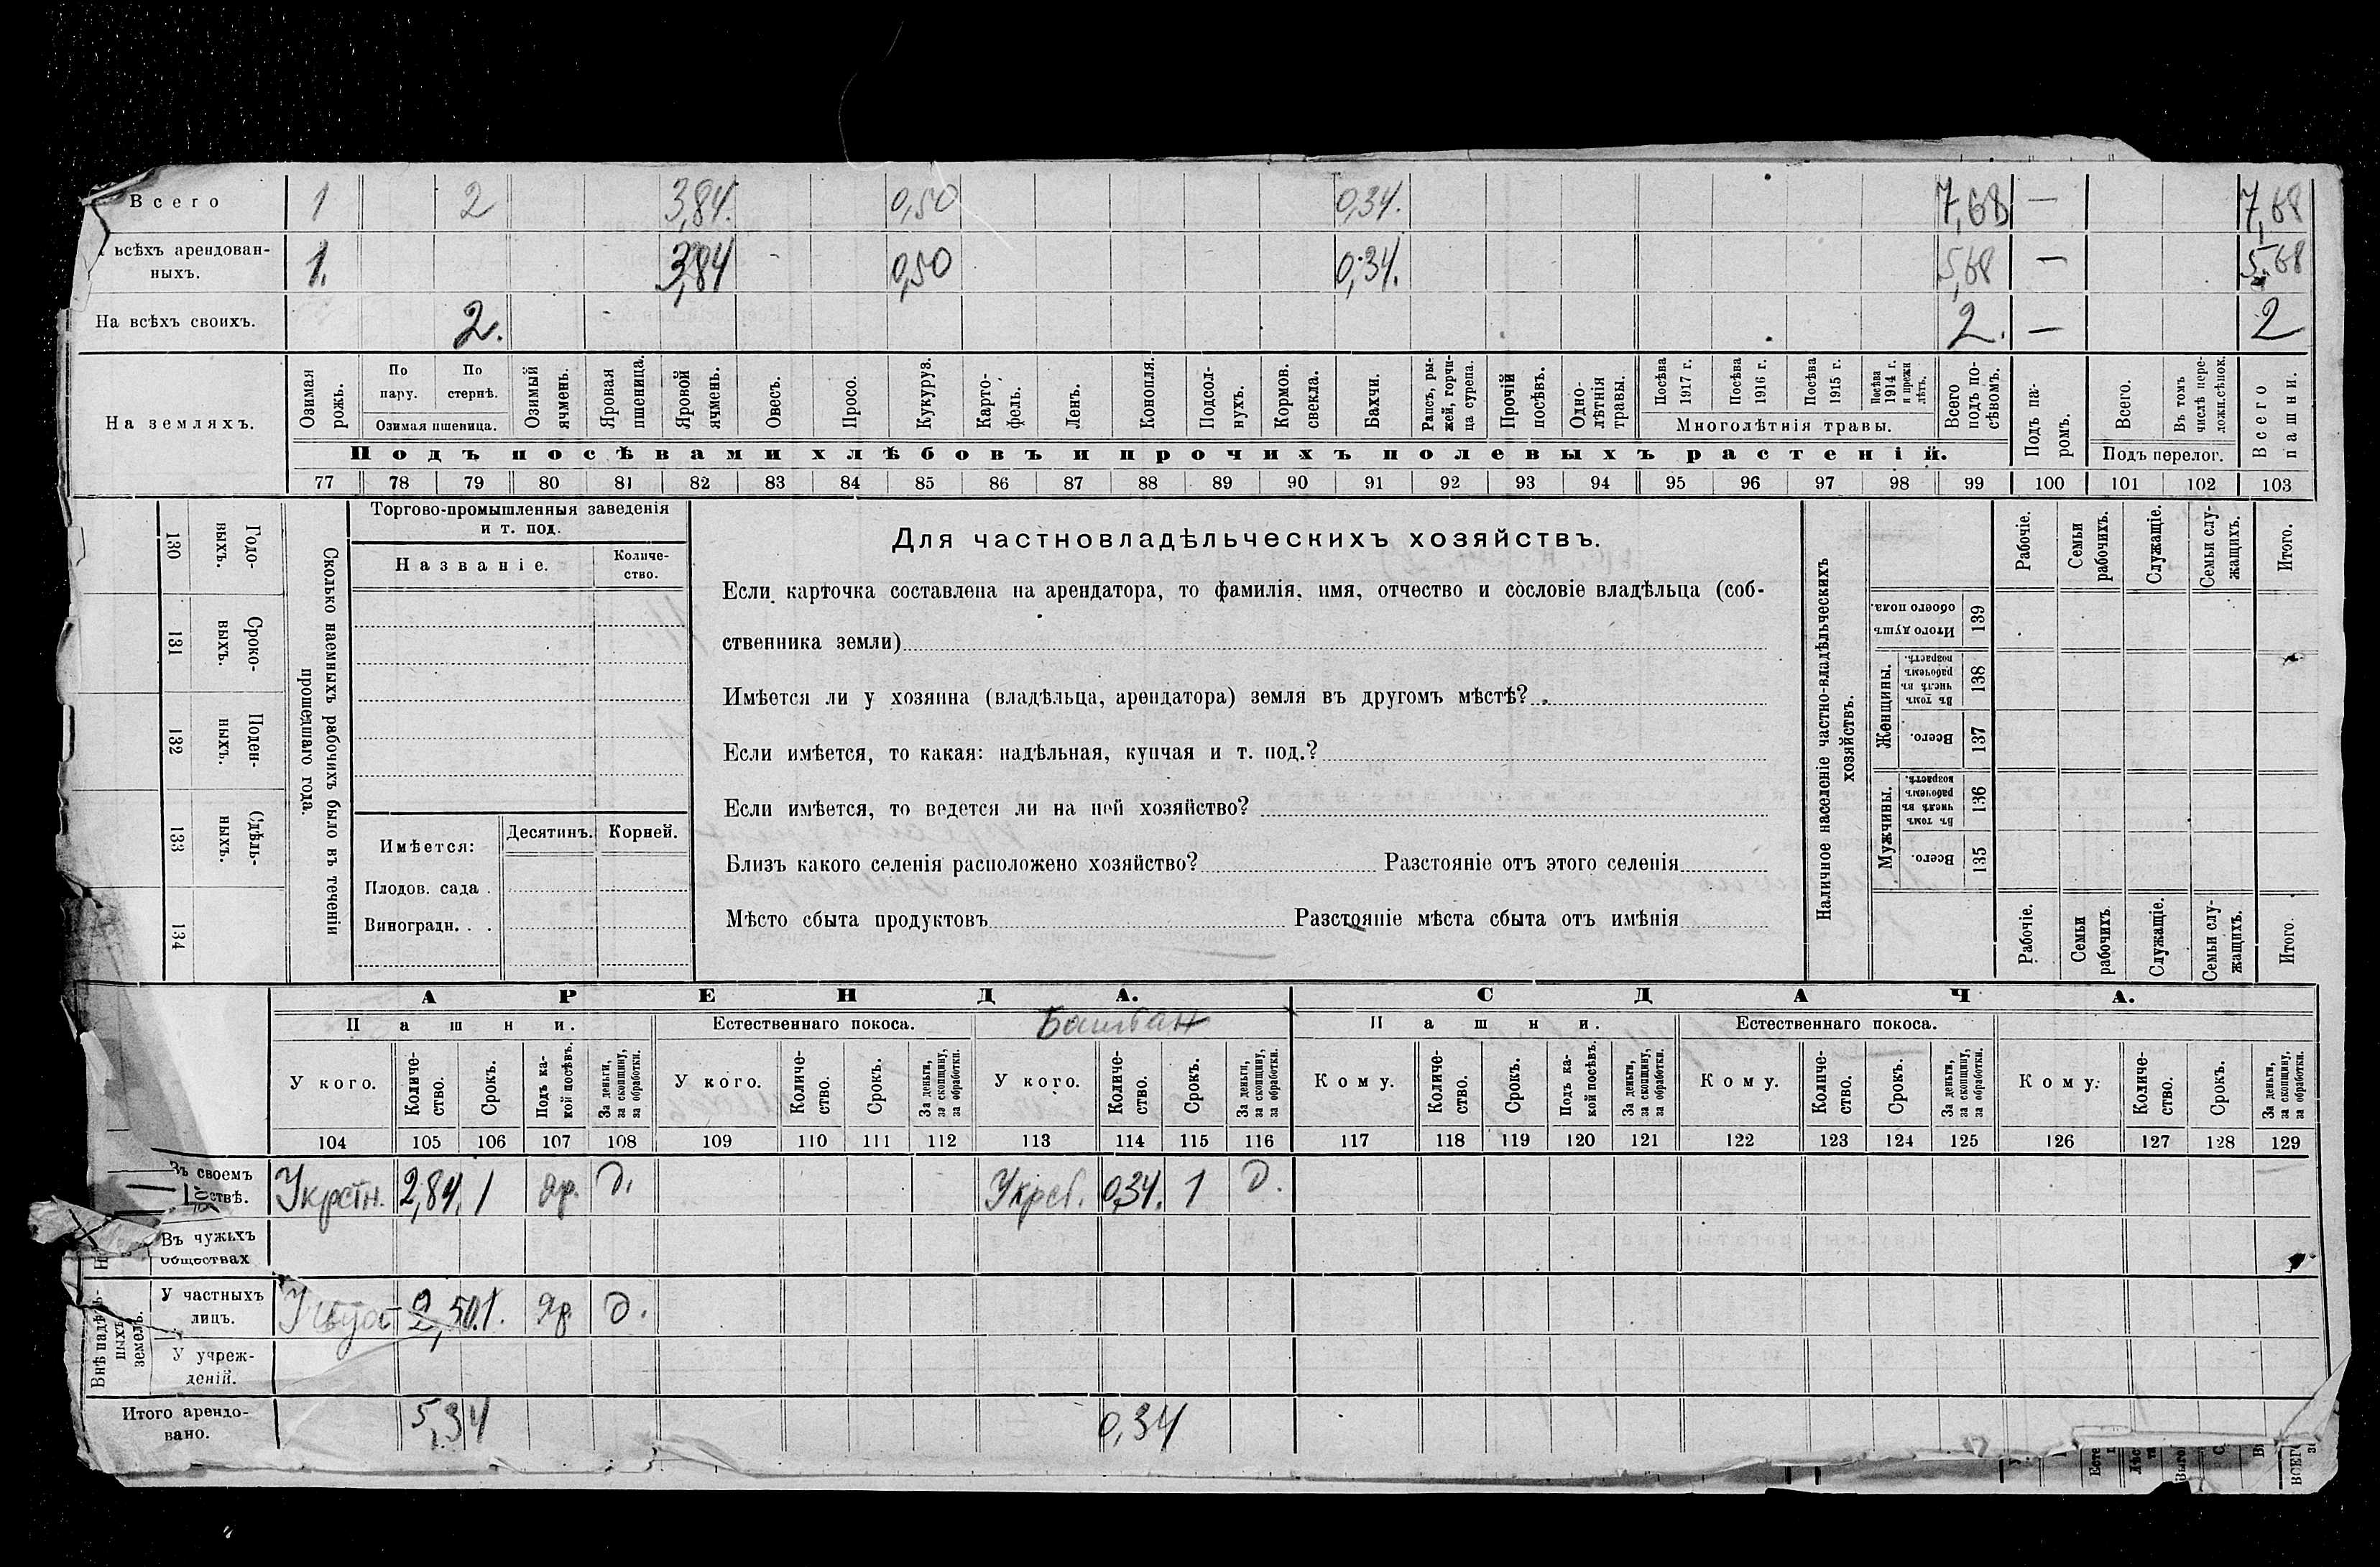 Всего 1 2 3,84. 0,50 0,34. 7,68 — 7,68
всѣхъ арендован-
ныхъ. 1. 3,84 0,50 0,34. 5,68 — 5,68
На всѣхъ своихъ. 2. 2. — 2
На земляхъ.
Озимая рожь.
По пару.
По стернѣ.
Озимая пшеница.
Озимый ячмень.
Яровая пшеница.
Яровой ячмень.
Овесъ.
Просо.
Кукуруз.
Карто-
фель.
Ленъ.
Конопля.
Подсол-
нухъ.
Кормов.
свекла.
Бахчи.
Рапсъ, ры-
жей, горчи-
ца сурепа.
Прочій
посѣвъ.
Одно-
лѣтнія
травы.
Посѣва
1917 г.
Посѣва
1916 г.
Посѣва
1915 г.
Посѣва
1914 г.
и прежн
лѣтъ.
Многолѣтнія травы.
Всего
подъ по-
сѣвомъ.
Подъ па-
ромъ.
Всего.
Въ томъ
числѣ пере-
ложн.сѣнок.
Подъ перелог.
Всего
пашни.
Подъ посѣвами хлѣбовъ и прочихъ полевыхъ растеній.
77 78 79 80 81 82 83 84 85 86 87 88 89 90 91 92 93 94 95 96 97 98 99 100 101 102 103
130 Годо-
выхъ.
131 Сроко-
выхъ.
132 Поден-
ныхъ.
133 Сдѣль-
ныхъ.
134
Сколько наемныхъ рабочихъ было въ теченіи
прошедшаго года.
Торгово-промышленныя заведенія
и т. под.
Названіе.
Количе-
ство.
Имѣется:
Десятинъ. Корней.
Плодов. сада .
Виноградн. . .
Для частновладѣльческихъ хозяйствъ.
Если карточка составлена на арендатора, то фамилія, имя, отчество и сословіе владѣльца (соб-
ственника земли)
Имѣется ли у хозяина (владѣльца, арендатора) земля въ другомъ мѣстѣ?
Если имѣется, то какая: надѣльная, купчая и т. под.?
Если имѣется, то ведется ли на ней хозяйство?
Близъ какого селенія расположено хозяйство? Разстояніе отъ этого селенія
Мѣсто сбыта продуктовъ Разстояніе мѣста сбыта отъ имѣнія
Наличное населеніе частно-владѣльческихъ
хозяйствъ.
Рабочіе.
Семьи
рабочихъ.
Служащіе.
Семьи слу-
жащихъ.
Итого.
Итого душъ
обоего пола.
139
Женщины.
Въ томъ
числѣ въ
рабочемъ
возрастѣ.
138
Всего.
137
Мужчины.
Въ томъ
числѣ въ
рабочемъ
возрастѣ.
136
Всего.
135
Рабочіе.
Семьи
рабочихъ
Служащіе.
Семьи слу-
жащихъ.
Итого.
АРЕНДА. СДАЧА.
Пашни. Естественнаго покоса. Баштан Пашни. Естественнаго покоса.
У кого.
Количе-
ство.
Срокъ.
Подъ ка-
кой посѣвъ.
За деньги,
за скопщину,
за обработки.
У кого.
Количе-
ство.
Срокъ.
За деньги,
за скопщину,
за обработки.
У кого.
Количе-
ство.
Срокъ.
За деньги,
за скопщину,
за обработки.
Кому.
Количе-
ство.
Срокъ.
Подъ ка-
кой посѣвъ.
За деньги,
за скопщину,
за обработки.
Кому.
Количе-
ство.
Срокъ.
За деньги,
за скопщину,
за обработки.
Кому.
Количе-
ство.
Срокъ.
За деньги,
за скопщину,
за обработки.
104 105 106 107 108 109 110 111 112 113 114 115 116 117 118 119 120 121 122 123 124 125 126 127 128 129
Въ своемъ
ствѣ. У крстн. 2,84. 1 яр. д. У крст. 0,34. 1 д.
Въ чужихъ
обществах
Внѣ надѣль-
ныхъ
земель.
У частныхъ
лицъ. 2,50. 1. яр. д.
У учреж-
деній.
Итого арендо-
вано. 5,34 0,34